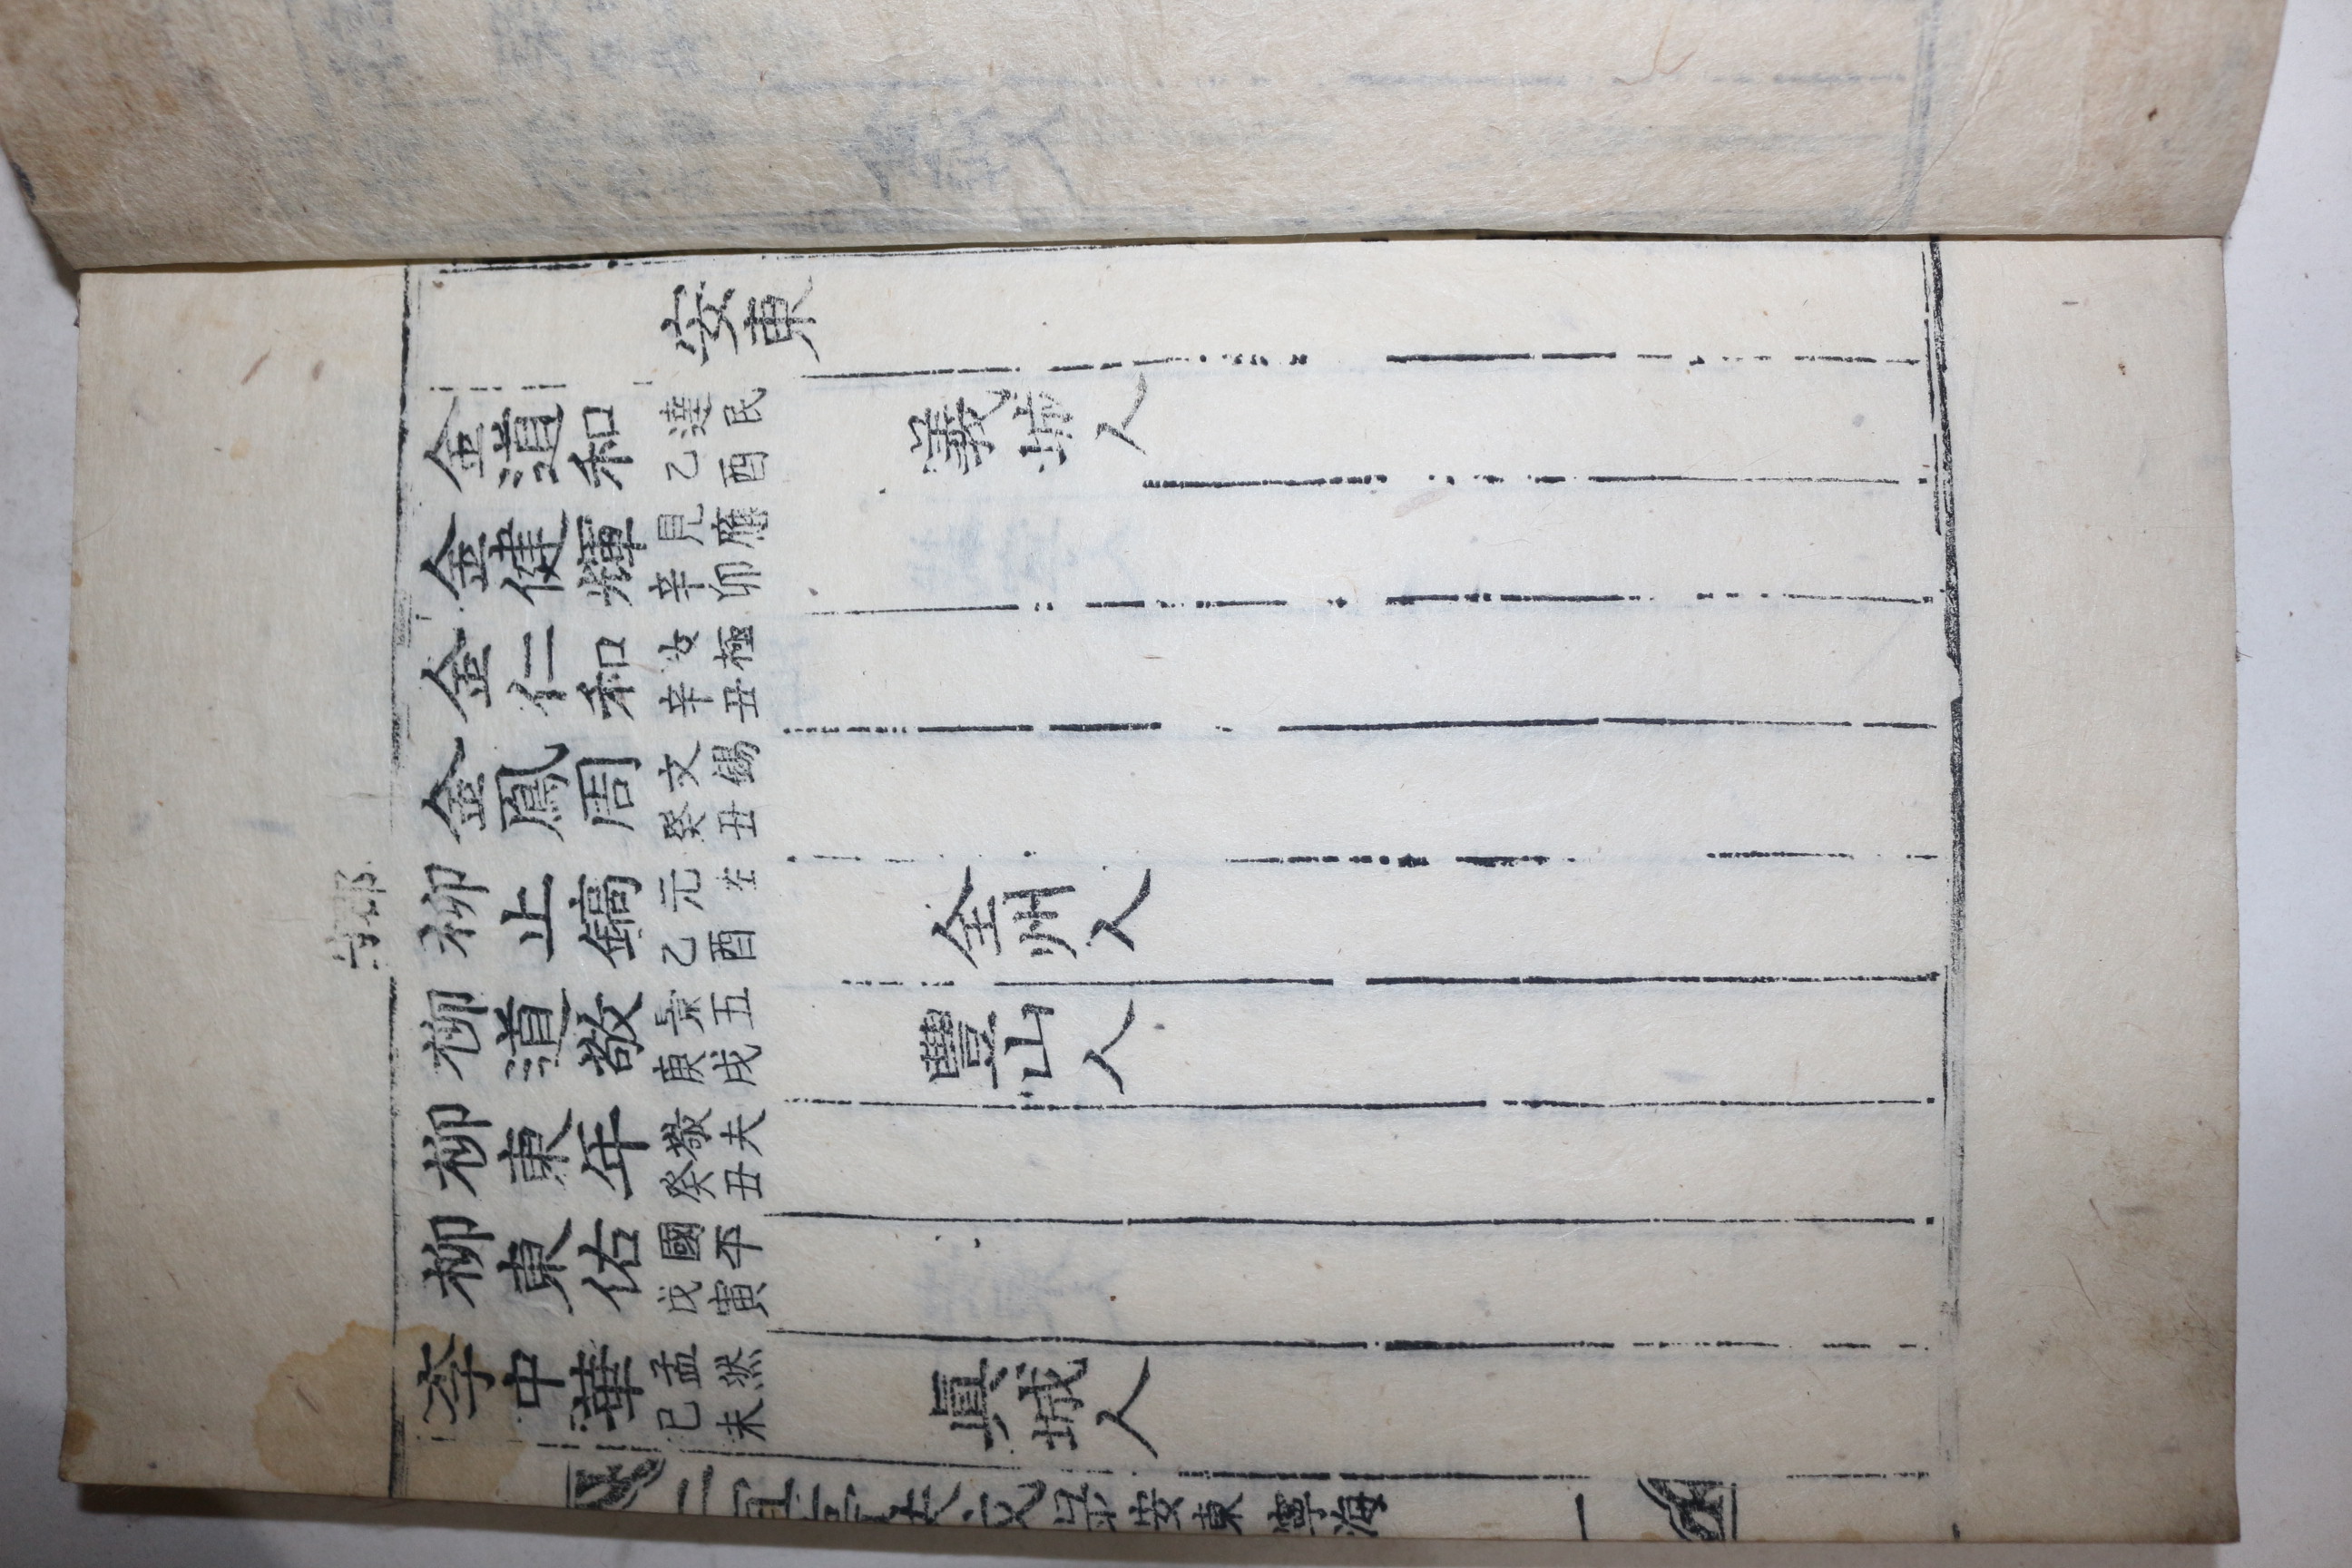 安東
金道和 達民 乙酉 義城人
金健輝 見應 辛卯
金仁和 汝極 辛丑
金鳳周 文錫 癸丑
郡守
柳止鎬 元佐 乙酉 全州人
柳道敬 景五 庚戌 豐山人
柳東年 敬夫 癸丑
柳東佑 國平 戊寅
李中華 孟然 已未 眞城人
安東 寧海
一